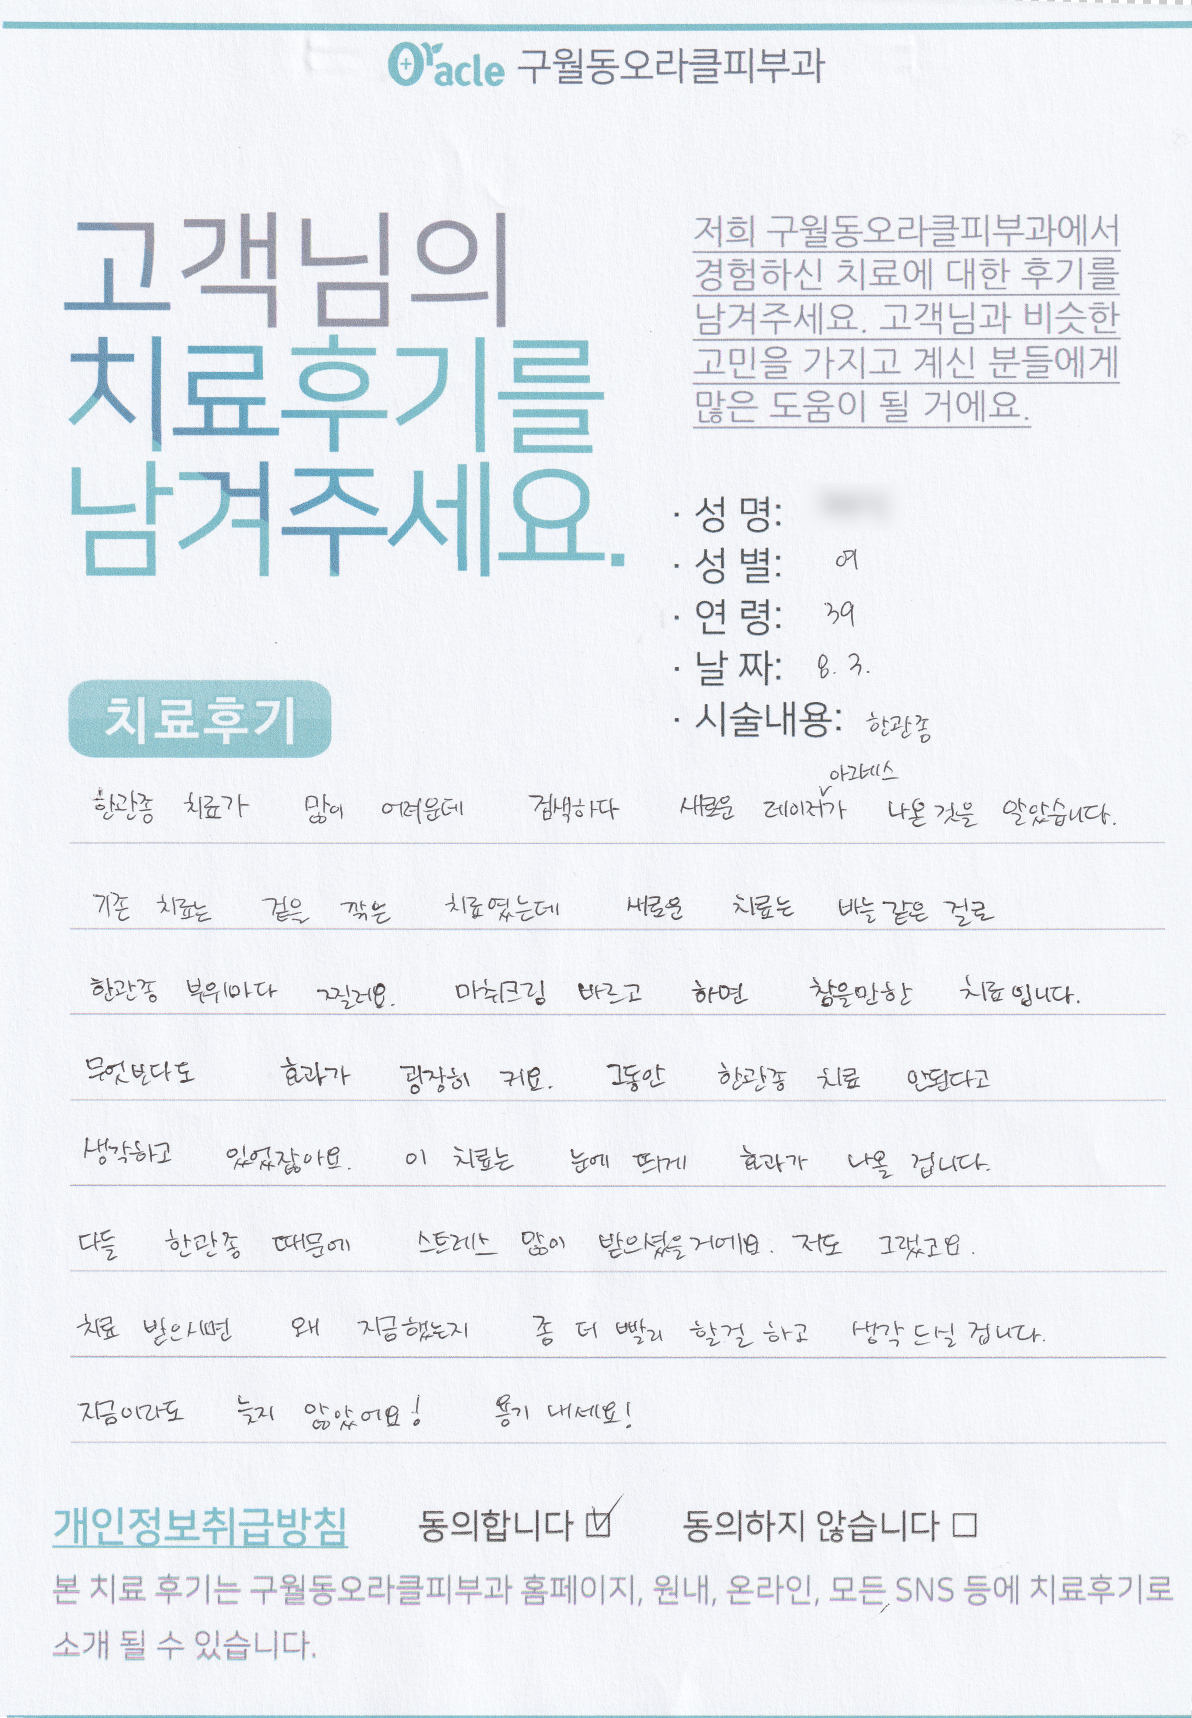 Oracle 구월동오라클피부과
고객님의
치료후기를
남겨주세요.
저희 구월동오라클피부과에서
경험하신 치료에 대한 후기를
남겨주세요. 고객님과 비슷한
고민을 가지고 계신 분들에게
많은 도움이 될 거에요.
· 성 명:
· 성 별: 여
· 연 령: 39
· 날 짜: 8. 3.
· 시술내용: 한관종
치료후기
아그네스
한관종 치료가 많이 어려운데 검색하다 새로운 레이저가 나온 것을 알았습니다.
기존 치료는 겉을 깎는 치료였는데 새로운 치료는 바늘 같은 걸로
한관종 부위마다 찔러요. 마취크림 바르고 하면 참을만한 치료입니다.
무엇보다도 효과가 굉장히 커요. 그동안 한관종 치료 안된다고
생각하고 있었잖아요. 이 치료는 눈에 띄게 효과가 나올 겁니다.
다들 한관종 때문에 스트레스 많이 받으셨을거에요. 저도 그랬고요.
치료 받으시면 왜 지금했는지 좀 더 빨리 할걸 하고 생각 드실 겁니다.
지금이라도 늦지 않았어요! 용기 내세요!
개인정보취급방침 동의합니다 ☑ 동의하지 않습니다 □
본 치료 후기는 구월동오라클피부과 홈페이지, 원내, 온라인, 모든 SNS 등에 치료후기로
소개 될 수 있습니다.